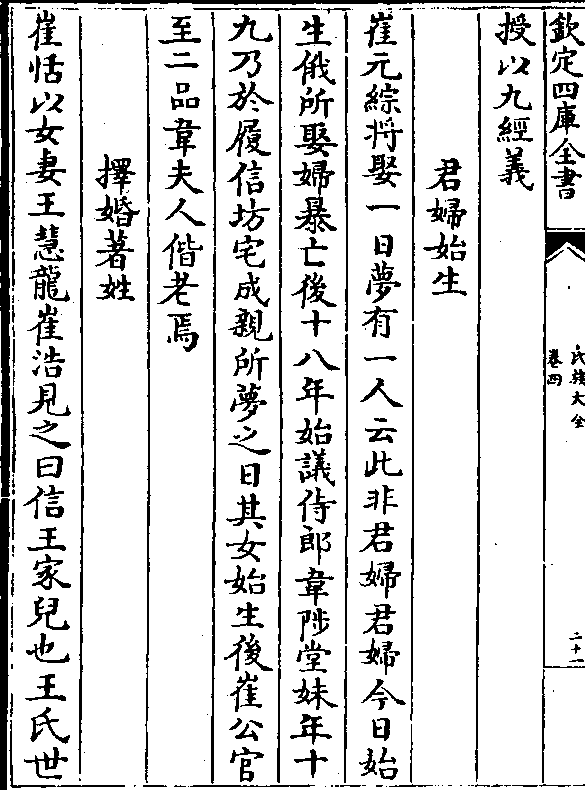 欽定四庫全書
氏族大全
卷四
二十一
授以九經義
君婦始生
崔元綜將娶一日夢有一人云此非君婦君婦今日始
生俄所娶婦暴亡後十八年始議侍郎韋陟堂妹年十
九乃於履信坊宅成親所夢之日其女始生後崔公官
至二品韋夫人偕老焉
擇婚著姓
崔恬以女妻王慧龍崔浩見之曰信王家兒也王氏世